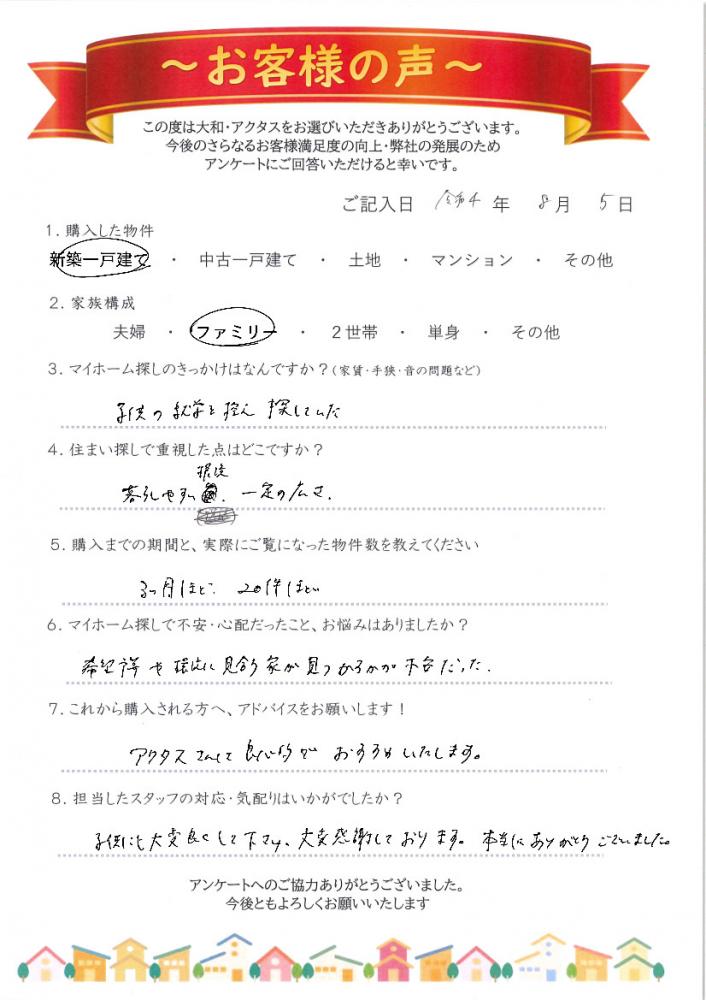 ～お客様の声～
この度は大和・アクタスをお選びいただきありがとうございます。
今後のさらなるお客様満足度の向上・弊社の発展のため
アンケートにご回答いただけると幸いです。
ご記入日 令和4 年 8月 5日
1．購入した物件
新築一戸建て ・ 中古一戸建て ・ 土地 ・ マンション ・ その他
2．家族構成
夫婦 ・ ファミリー ・ 2世帯 ・ 単身 ・ その他
3．マイホーム探しのきっかけはなんですか？（家賃・手狭・音の問題など）
子供の就学を控え 探していた
4．住まい探しで重視した点はどこですか？
環境
暮らしやすい 、一定の広さ.
5．購入までの期間と、実際にご覧になった物件数を教えてください
3ヶ月ほど. 20件ほど
6．マイホーム探しで不安・心配だったこと、お悩みはありましたか？
希望 や 環境に見合う家が見つかるかが 不安だった.
7．これから購入される方へ、アドバイスをお願いします！
アクタスさんは良心的で おすすめいたします。
8．担当したスタッフの対応・気配りはいかがでしたか？
子供にも大変良くして下さり、大変感謝しております。本当にありがとうございました。
アンケートへのご協力ありがとうございました。
今後ともよろしくお願いいたします